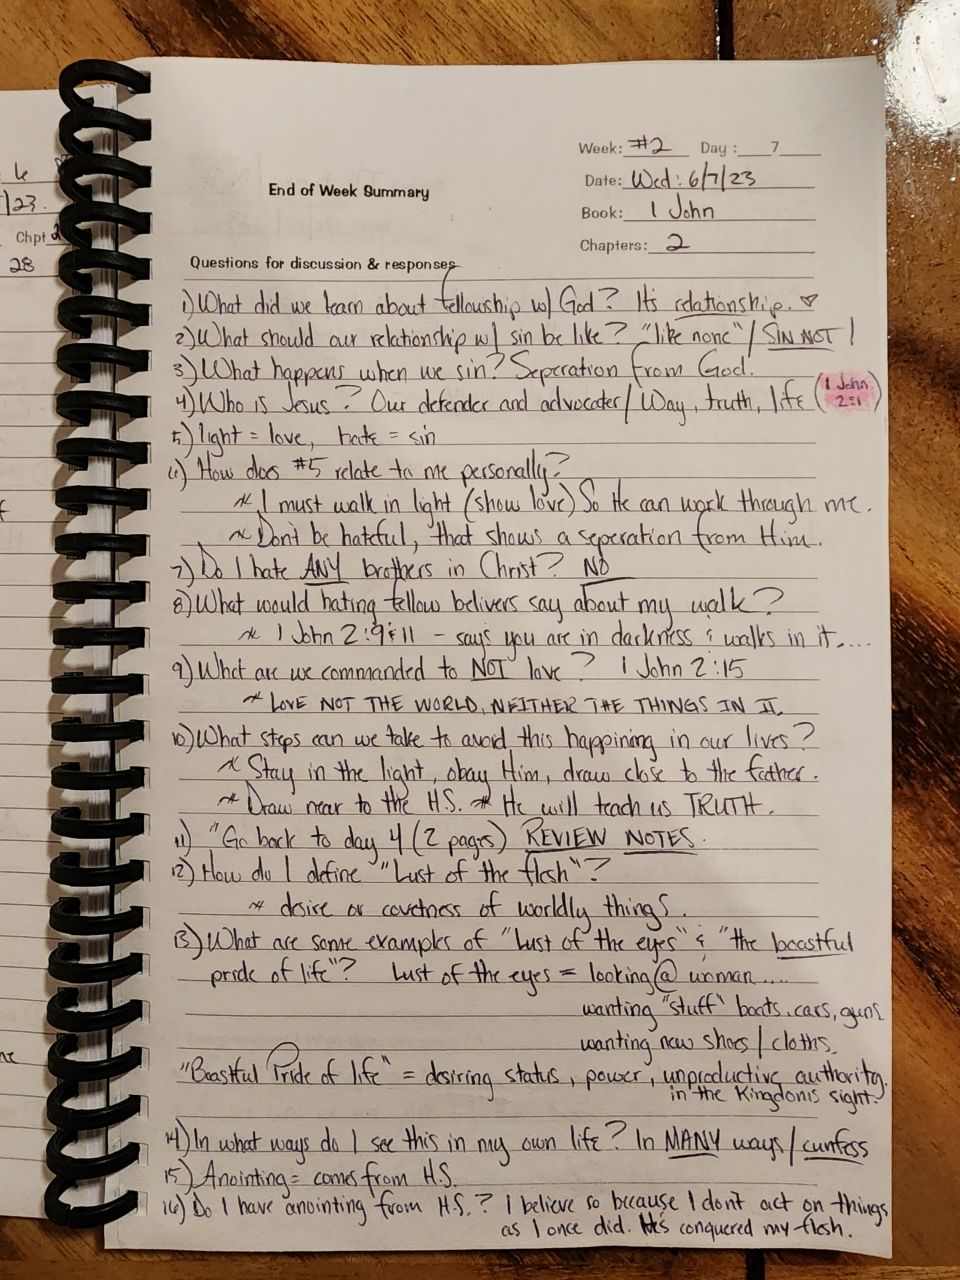 6
/23
Chpt 2
28
Week: #2 Day: 7
End of Week Summary
Date: Wed: 6/7/23
Book: 1 John
Chapters: 2
Questions for discussion & responses
1) What did we learn about fellowship w/ God? Its relationship. ♡
2) What should our relationship w/ sin be like? "like none" / SIN NOT!
3) What happens when we sin? Seperation from God.
4) Who is Jesus? Our defender and advocater / Way, truth, life (1 John 2:1)
5) light = love, hate = sin
6) How does #5 relate to me personally?
* I must walk in light (show love) So He can work through me.
~ Don't be hateful, that shows a seperation from Him.
7) Do I hate ANY brothers in Christ? NO
8) What would hating fellow belivers say about my walk?
* 1 John 2:9 & 11 - says you are in darkness & walks in it....
9) What are we commanded to NOT love? 1 John 2:15
* LOVE NOT THE WORLD, NEITHER THE THINGS IN IT.
10) What steps can we take to avoid this happining in our lives?
* Stay in the light, obay Him, draw close to the father.
* Draw near to the H.S. * He will teach us TRUTH.
11) "Go back to day 4 (2 pages) REVIEW NOTES.
12) How do I define "Lust of the flesh"?
* desire or covetness of worldly things.
13) What are some examples of "Lust of the eyes" & "the boastful
pride of life"? Lust of the eyes = looking @ woman....
wanting "stuff" boats, cars, guns
wanting new shoes / cloths.
"Boastful Pride of life" = desiring status, power, unproductive authority.
in the Kingdom's sight.
14) In what ways do I see this in my own life? In MANY ways / cunfess
15) Anointing = comes from H.S.
16) Do I have anointing from H.S.? I believe so because I don't act on things
as I once did. He's conquered my flesh.